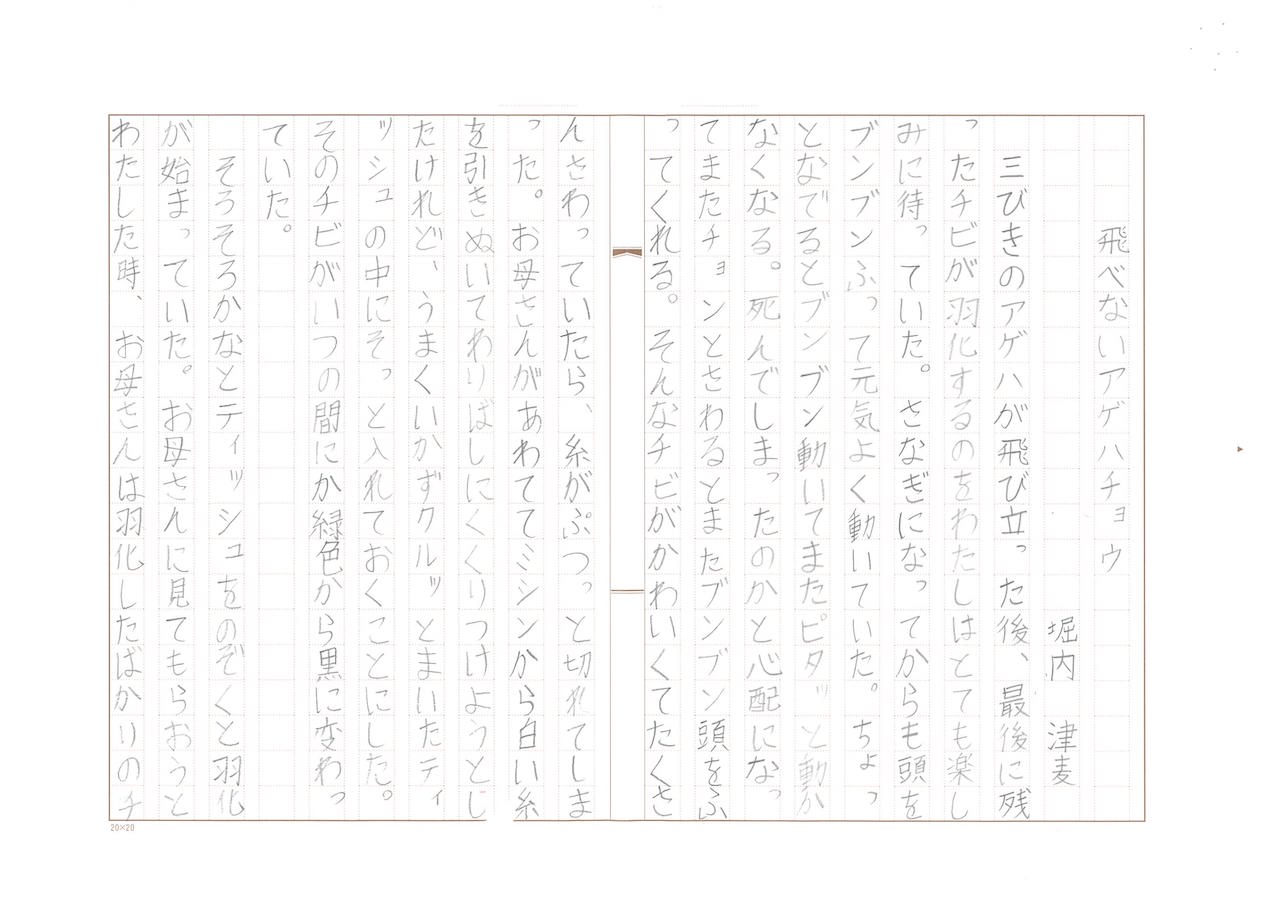 飛べないアゲハチョウ
堀内　津麦
三びきのアゲハが飛び立った後、最後に残
ったチビが羽化するのをわたしはとても楽し
みに待っていた。さなぎになってからも頭を
ブンブンふって元気よく動いていた。ちょっ
となでるとブンブン動いてまたピタッと動か
なくなる。死んでしまったのかと心配になっ
てまたチョンとさわるとまたブンブン頭をふ
ってくれる。そんなチビがかわいくてたくさ
んさわっていたら、糸がぷつっと切れてしま
った。お母さんがあわててミシンから白い糸
を引きぬいてわりばしにくくりつけようとし
たけれど、うまくいかずクルッとまいたティ
ッシュの中にそっと入れておくことにした。
そのチビがいつの間にか緑色から黒に変わっ
ていた。
そろそろかなとティッシュをのぞくと羽化
が始まっていた。お母さんに見てもらおうと
わたした時、お母さんは羽化したばかりのチ
20×20